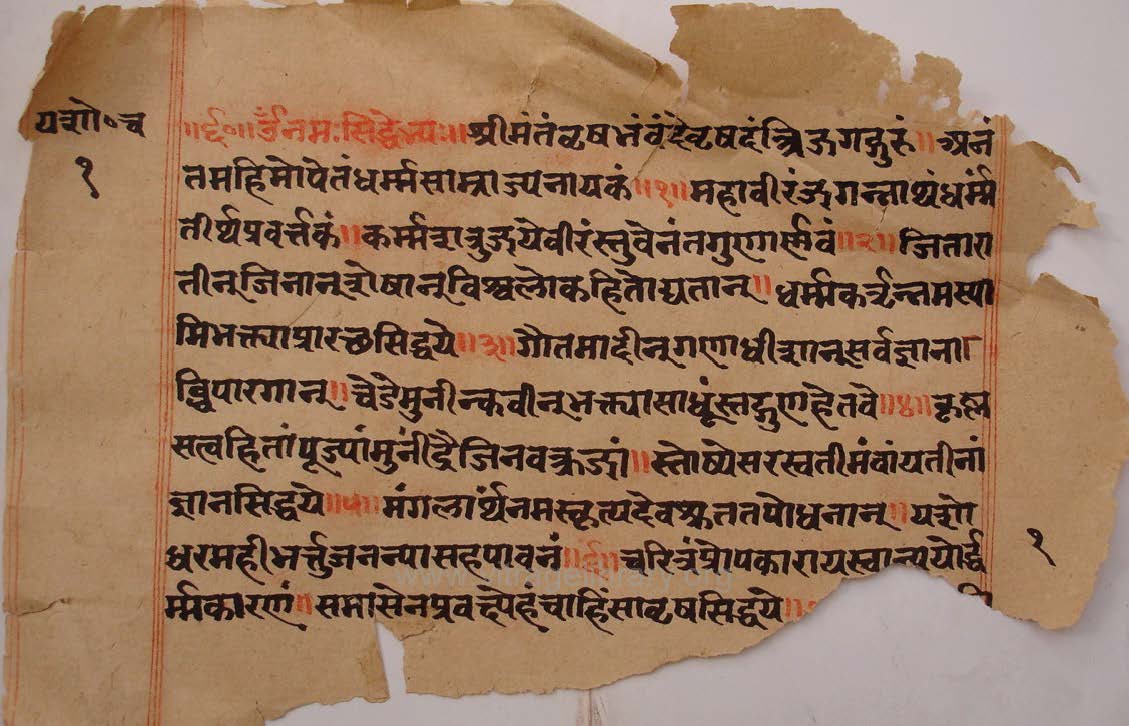 यशो०च
१
॥र्द०॥ॐनमःसिद्धेभ्यः॥श्रीमंतंवृषभंवंदेवृषदंत्रिजगद्गुरुं॥अनं
तमहिमोपेतंधर्म्मसाम्राज्यनायकं॥१॥महावीरंजगन्नाथंधर्म्म
तीर्थप्रवर्त्तकं॥कर्म्मशत्रुजयेवीरंस्तुवेनंतगुणार्णवं॥२॥जितारा
तीन्जिनान्शेषान्विश्वलोकहितोद्यतान्॥धर्म्मकर्तॄन्नमस्या
मिभक्त्याप्रारब्धसिद्धये॥३॥गौतमादीन्गणाधीशान्सर्वज्ञाना
ब्धिपारगान्॥चेडेमुनीन्कवीन्भक्त्यासाधूंस्तद्गुणहेतवे॥४॥कृत्स्न
सत्वहितांपूज्यांमुनींद्रैर्जिनवक्त्रजां॥स्तोष्येसरस्वतीमंवांयतीनां
ज्ञानसिद्धये॥५॥मंगलार्थंनमस्कृत्यदेवश्रुततपोधनान्॥यशो
धरमहीभर्त्तुर्जनन्यासहपावनं॥६॥चरित्रंप्रोपकारायस्वान्ययोर्द्ध
र्म्मकारणं॥समासेनप्रवक्ष्येहंचाहिंसावृषसिद्धये॥
१